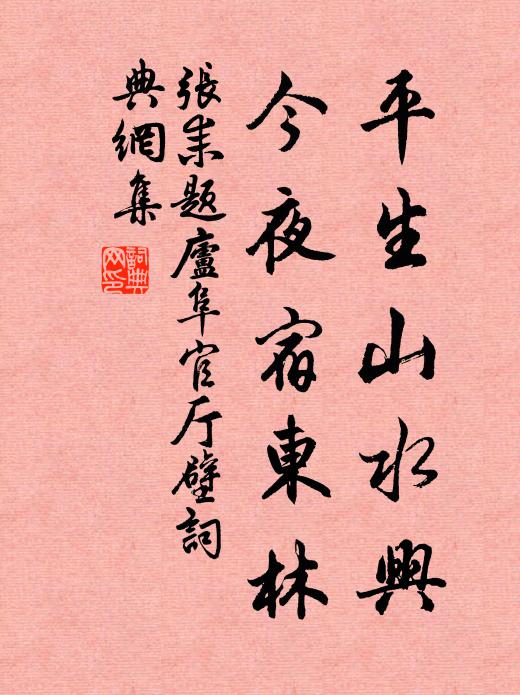 平生山水興
今夜宿東林
張耒題廬阜官厅壁詞
典網集
詞典
网印